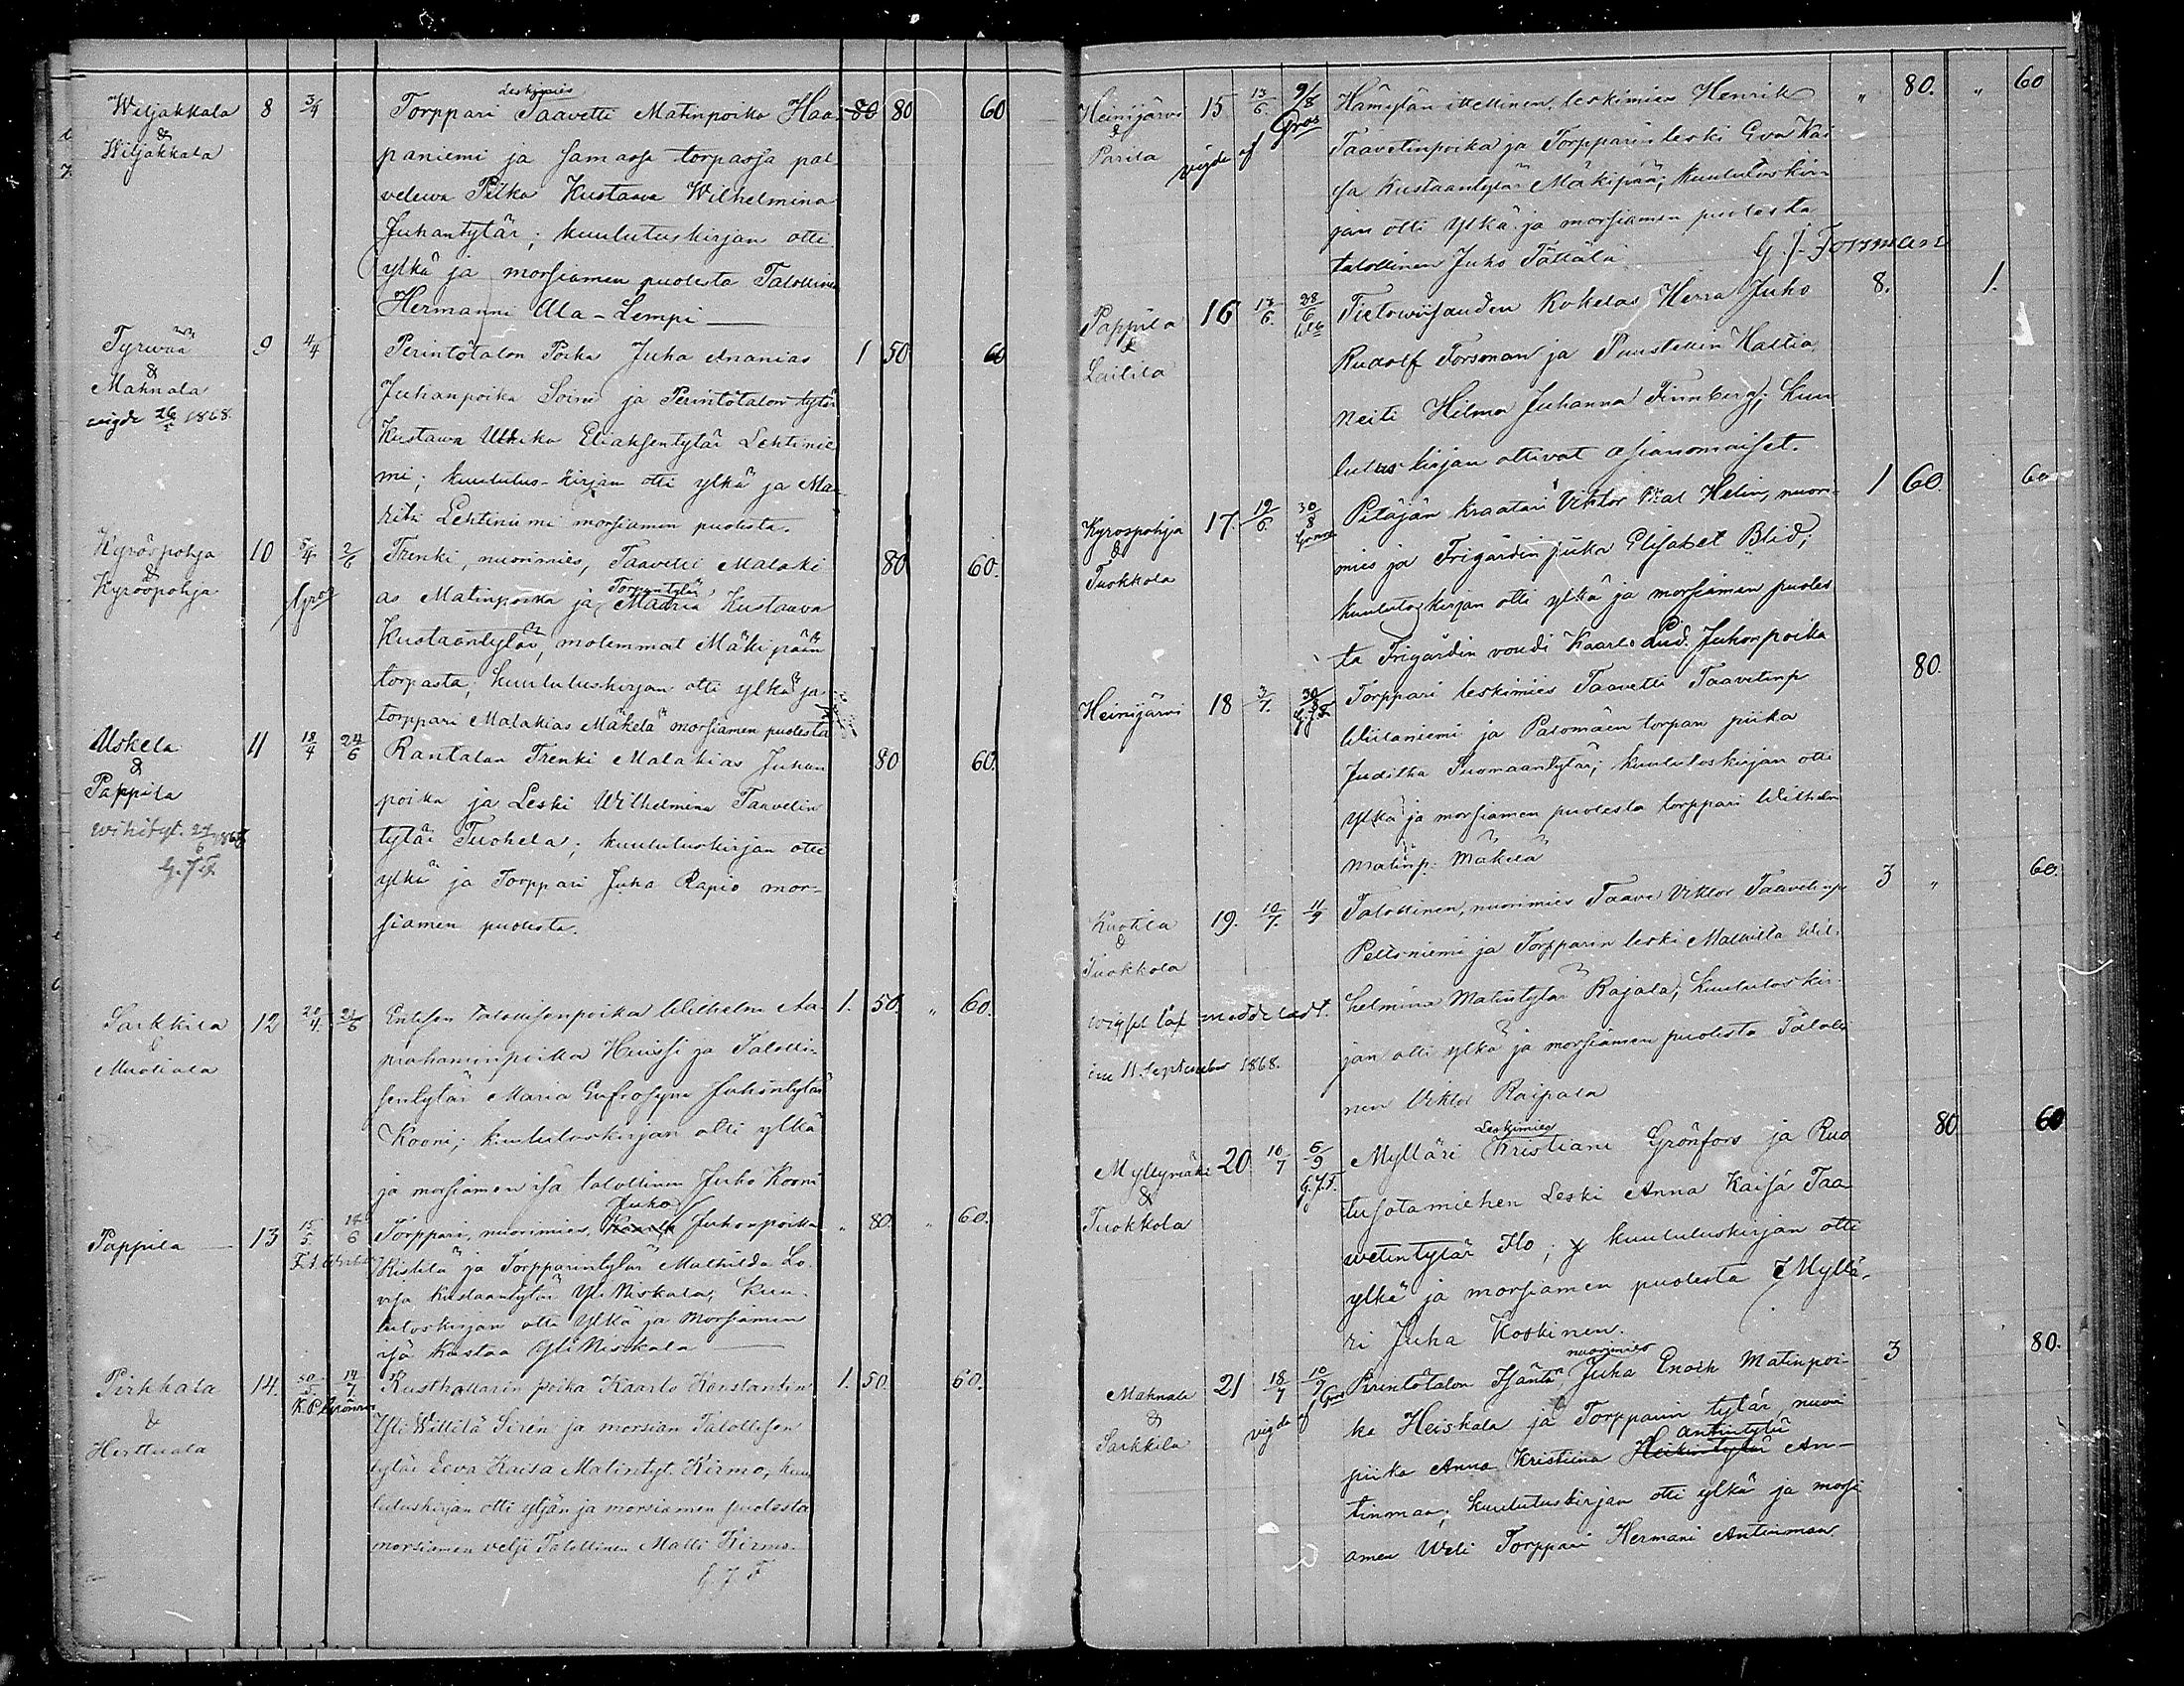 Wiljakkala
&
Wiljakkala
8 3/4
leskimies
Torppari Taavetti Matinpoika Haa- 80 80 60
paniemi ja samassa torpassa pal
veleva Piika Kustaava Wilhelmina
Juhantytär; kuulutuskirjan otti
ylkä ja morsiamen puolesta Talollinen
Hermanni Ala-Lempi
Tyrwää
&
Mahnala
vigde 1868.
9 4/4
Perintötalon Poika Juha Ananias 1 50 60
Juhanpoika Soini ja Perintötalon tytär
Kustawa Ulriika Eliaksentytär Lehtinie
mi; kuulutus-kirjan otti ylkä ja
Lehtiniemi morsiamen puolesta.
Kyröspohja
&
Kyröspohja
10 5/4 2/6
Trenki, nuorimies, Taavetti Malaki 80 60.
Torpantytär
as Matinpoika ja Maaria Kustaava
Kustaantytär, molemmat Mäkipään
torpasta; kuulutuskirjan otti ylkä ja
torppari Malakias Mäkelä morsiamen puolesta
Uskela
&
Pappila
wihityt. 24/6 1868
G. J. F.
11 18/4 24/6
Rantalan Trenki Malakias Juhan 80 60.
poika ja Leski Wilhelmina Taavetin
tytär Tuohela; kuulutuskirjan otti
ylkä ja Torppari Juha Rapio mor-
siamen puolesta.
Sarkkila
&
12
Entisen talollisenpoika Wilhelm Aa 1. 50. " 60.
prahaminpoika Heissi ja Talolli-
sentytär Maria Eufrosyne Juhontytär
Kooni; kuulutoskirjan otti ylkä
ja morsiamen isä talollinen Juho Kooni
Pappila
13 15/5 14/6
Juho
Torppari, nuorimies, Kaarle Juhonpoika " 80. " 60.
Kistilä ja Torpparintytär Mathilda Lo
visa Kustaantytär Yli Niskala; kuu-
lutoskirjan otti ylkä ja Morsiamen
isä Kustaa Yli Niskala
Pirkkala
&
Herttuala
14. 30/5 14/7
Rusthollarin poika Kaarlo Konstantin 1. 50. 60.
Yli Wittilä Sirén ja morsian Talollisen
tytär Eeva Kaisa Matintyt. Kirmo, kuu
lutuskirjan otti yljän ja morsiamen puolesta
morsiamen velji Talollinen Matti Kirmo
G. J. F
Heinijärvi
&
Parila
15 13/6. 9/8
vigde af Gros
Hämylän itellinen, leskimies Henrik " 80. " 60
Taavetinpoika ja Torpparin leski Eva Kai
sa Kustaantytär Mäkipää; kuulutoskir-
jan otti ylkä ja morsiamen puolesta
talollinen Juho Tättälä
G. J. Forsman
Pappila
&
Laitila
16 17/6. 28/6
Tietowiisauden Kokelas Herra Juho 8. 1.
Rudolf Forsman ja Puustellin Haltia
Neiti Hilma Juhanna Finnberg; Kuu
lutus kirjan ottivat asianomaiset.
Kyröspohja
&
Tuokkola
17. 19/6. 30/8
Pitäjän kraatari Viktor Helin, nuori- 1 60. 60
mies ja Frigårdin piika Elisabet Blid;
kuulutoskirjan otti ylkä ja morsiamen puoles
ta Frigårdin voudi Kaarlo Lud. Juhonpoika
Heinijärvi
18 3/7. 30/8
G. J. F.
Torppari leskimies Taavetti Taavetinp 80.
Wiitaniemi ja Palomäen torpan piika
Juditha Tuomaantytär; kuulutoskirjan otti
ylkä ja morsiamen puolesta torppari Wilhelm
Matinp. Mäkelä
Kuotila
&
Tuokkola
19. 10/7. 11/9
Talollinen, nuorimies Taave Viktor Taavetinp 3 " 60.
Peltoniemi ja Torpparin leski Mathilta Wil-
helmina Matintytär Rajala; kuulutoskir-
jan otti ylkä ja morsiamen puolesta Talolli
nen Viktor Raipala
meddeladt.
11. September 1868.
Myllymäki
&
Tuokkola
20. 16/7 6/9
G. J. F.
Leskimies
Mylläri Kristiani Grönfors ja Ruo 80 60
tusotamiehen Leski Anna Kaisa Taa
vetintytär Flo; kuulutuskirjan otti
ylkä ja morsiamen puolesta Myllä-
ri Juha Koskinen.
Mahnala
&
Sarkkila
21 18/7 10/9
vigde af Gros
nuorimies
Perintötalon Isäntä Juha Enoch Matinpoi- 3 80.
ka Heiskala ja Torpparin tytär, nuori
Antintytär
piika Anna Kristiina Heikintytär An-
tinmaa; kuulutuskirjan otti ylkä ja morsi
amen Weli Torppari Hermani Antinmaa